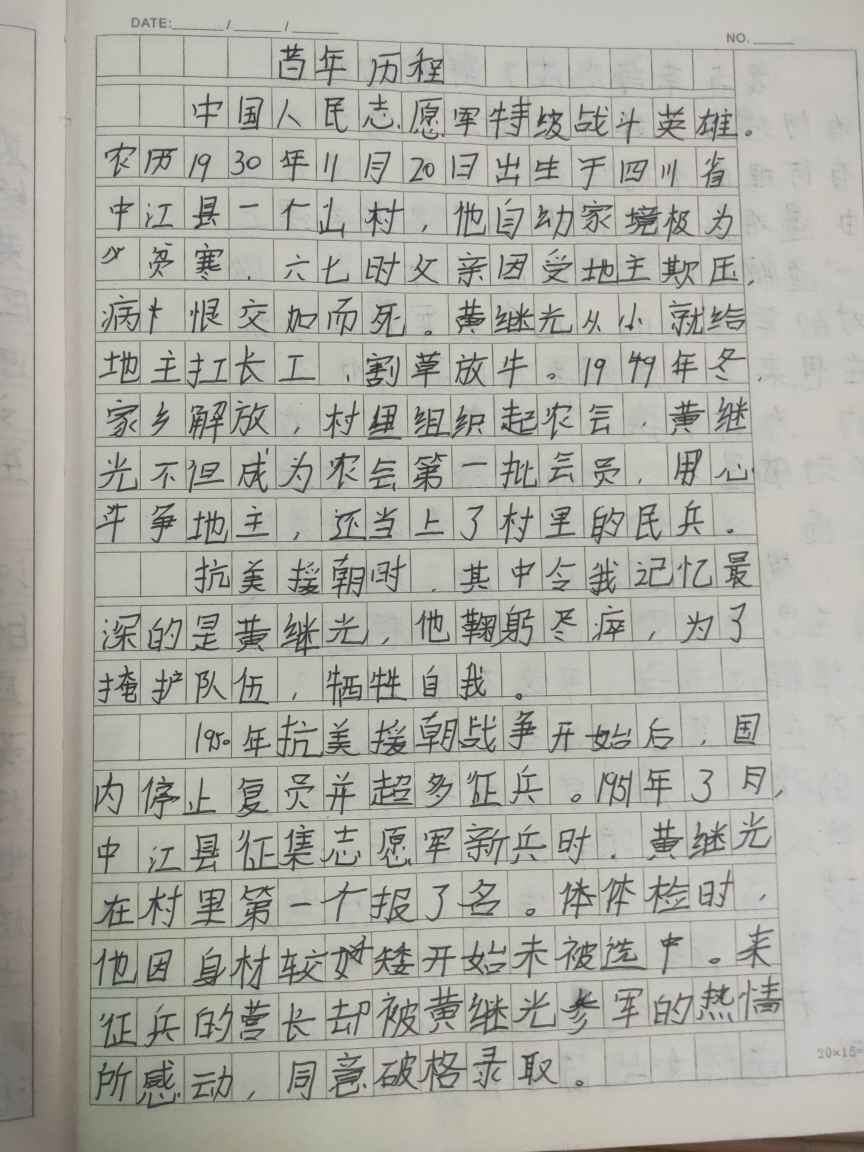 DATE: / /
NO.
昔年历程
中国人民志愿军特级战斗英雄。
农历1930年11月20日出生于四川省
中江县一个山村，他自幼家境极为
贫寒，六七时父亲因受地主欺压，
病恨交加而死。黄继光从小就给
地主扛长工、割草放牛。1949年冬，
家乡解放，村里组织起农会，黄继
光不但成为农会第一批会员，用心
斗争地主，还当上了村里的民兵。
抗美援朝时，其中令我记忆最
深的是黄继光，他鞠躬尽瘁，为了
掩护队伍，牺牲自我。
1950年抗美援朝战争开始后，国
内停止复员并超多征兵。1951年3月，
中江县征集志愿军新兵时，黄继光
在村里第一个报了名。体体检时，
他因身材较矮开始未被选中。来
征兵的营长却被黄继光参军的热情
所感动，同意破格录取。
20×15=